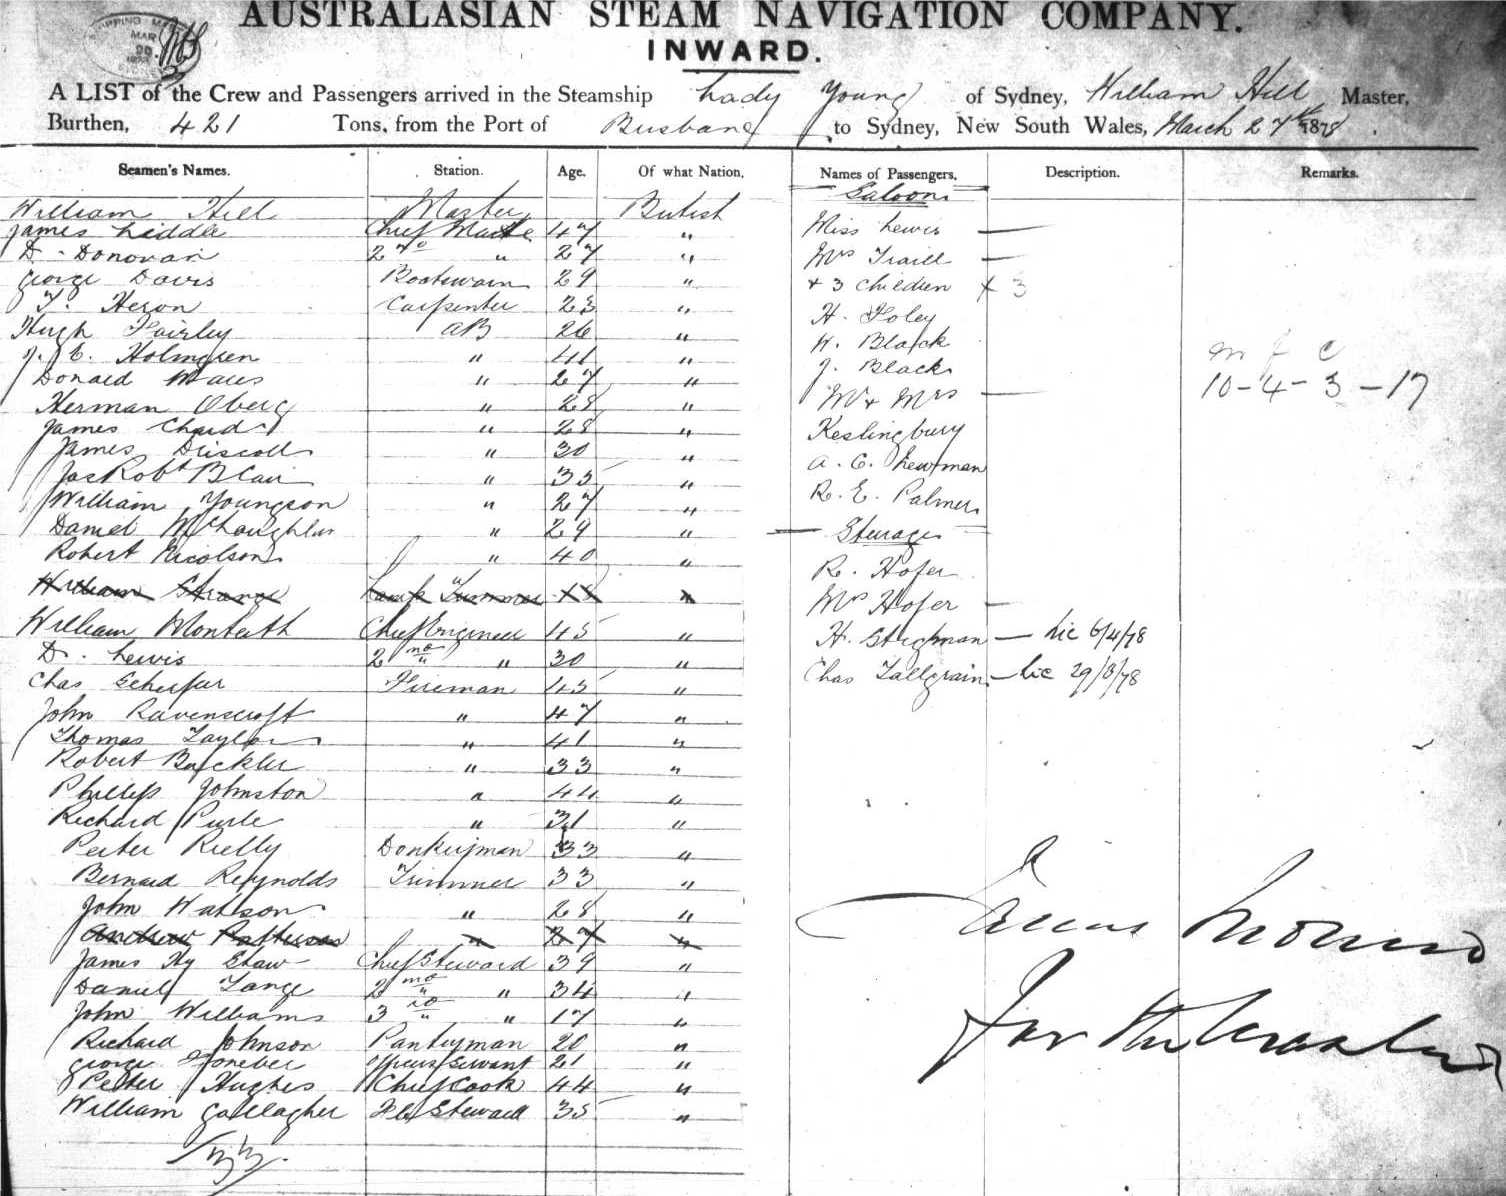 AUSTRALASIAN STEAM NAVIGATION COMPANY.
INWARD.
A LIST of the Crew and Passengers arrived in the Steamship Lady Young of Sydney, William Hill Master,
Burthen, 421 Tons, from the Port of Brisbane to Sydney, New South Wales, March 27th 1878.
Seamen's Names. Station. Age. Of what Nation.
William Hill Master British
James Liddle Chief Mate 47 "
D. Donovan 2nd " 27 "
George Davis Boatswain 29 "
T. Heron Carpenter 23 "
Hugh Fairley AB 26 "
J. E. Holmgren " 41 "
Donald " 27 "
Herman Oberg " 28 "
James Chard " 28 "
James Driscoll " 30 "
Jas Robt Blair " 35 "
William Youngson " 27 "
Daniel McLaughlin " 29 "
Robert Nicolson " 40 "
William Strange Lamp Trimmer 18 "
William Monteith Chief Engineer 45 "
D. Lewis 2nd " 30 "
Chas Fireman 45 "
John Ravenscroft " 47 "
Thomas Taylor " 41 "
Robert Buckler " 33 "
Phillip Johnston " 44 "
Richard Purle " 31 "
Peter Rielly Donkeyman 33 "
Bernard Reynolds Trimmer 33 "
John Watson " 28 "
Andrew Patterson " 27 "
James Hy Shaw Chief Steward 39 "
Daniel Tange 2nd " 34 "
John Williams 3rd " 17 "
Richard Johnson Pantryman 20 "
George Officers Servant 21 "
Peter Hughes Chief Cook 44 "
William Gallagher Steward 35 "
Names of Passengers. Description. Remarks.
Saloon
Miss Lewis —
Mrs Traill —
+ 3 Children x 3
H. Foley
H. Black
J. Black
Mr & Mrs —
Keslingbury
A. C. Newman
R. E. Palmer
Steerage
R. Hofer
Mrs Hofer —
H. Stegman — Lic 6/4/78
Chas Tallgrain — Lic 29/3/78
m f c
10-4-3-17
For the